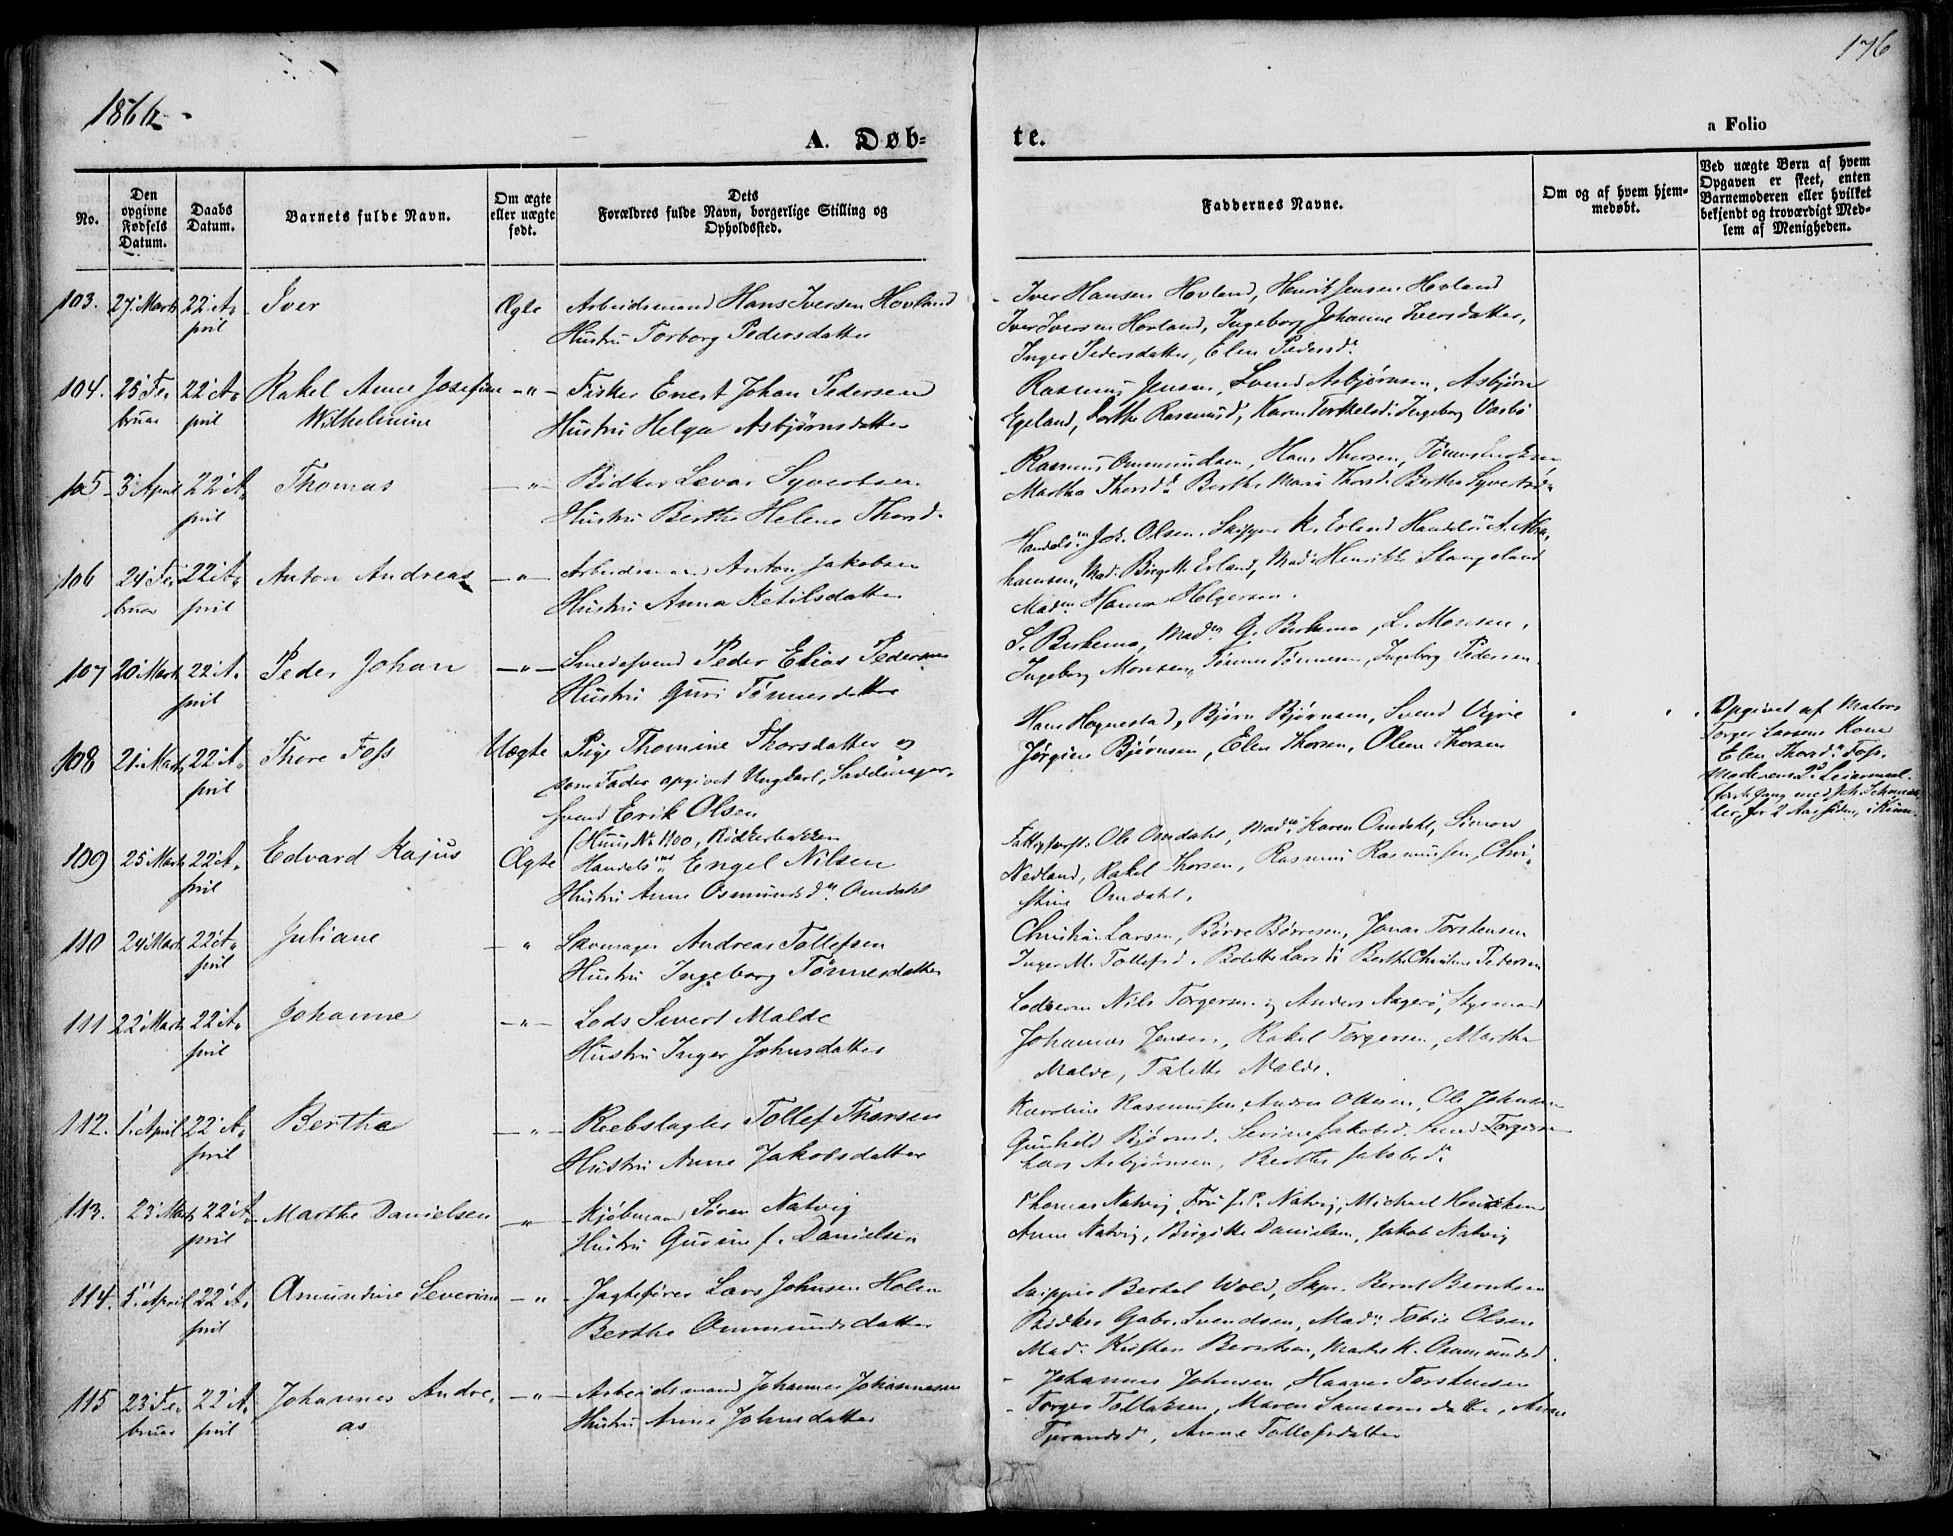 176
1866
A. Døb-
te.
a Folio
No.
Den opgivne Fødsels Datum.
Daabs Datum.
Barnets fulde Navn.
Om ægte eller uægte født.
Dets Forældres fulde Navn, borgerlige Stilling og Opholdssted.
Faddernes Navne.
Om og af hvem hjemmedøbt.
Ved uægte Børn af hvem Opgaven er skeet, enten Barnemoderen eller hvilket bekjendt og troværdigt Medlem af Menigheden.
103. 27 Marts 22 A- Iver Ægte Arbeidsmand Hans Iversen Hovland
pril Hustru Torborg Pedersdatter
Iver Hansen Hovland, Henrik Jensen Hovland
Iver Iversen Hovland, Ingeborg Johanne Iversdatter,
Inger Pedersdatter, Elen Pedersd.
104. 25 Fe- 22 A- Rakel Anne Josefine -"- Fisker Enert Johan Pedersen
bruar pril Wilhelmine Hustru Helga Asbjørnsdatter
Rasmus Jensen, Svend Asbjørnsen, Asbjørn
Egeland, Dorthe Rasmusd., Karen Terkelsd. Ingeborg Vasbø
105 3 April 22 A- Thomas -"- Bødker Levar Syvertsen
pril Hustru Berthe Helene Thorsd.
Rasmus Ommundsen, Hans Thorsen,
Martha Thorsd. Berthe Marie Thorsd. Berthe
106 24 Fe- 22 A- Anton Andreas -"- Arbeidsmand Anton Jakobsen
bruar pril Hustru Anna Ketilsdatter
Handelsm. Joh. Olsen, Skipper K. Erland Handelsm. A. Abra-
hamsen, Mad. Birgitte Erland, Mad. Henrikke Stangeland
Madm. Hanna Helgersen.
107 20 Marts 22 A- Peder Johan -"- Smedesvend Peder Elias Pedersen
pril Hustru Guri Tønnesdatter
S. Berkema, Madm. G. Berkema, L. Monsen,
Ingeborg Monsen, Tønnes Tønnesen, Ingeborg Pedersen
108 21 Marts 22 A- Thore Foss Uægte Pige Thomine Thorsdatter og
pril som Fader opgivet Ungkarl, Sadelmager-
svend Erik Olsen
Hans Hognestad, Bjørn Bjørnsen, Svend Vigre
Jørgine Bjørnsen, Elen Thorsen, Olene Thorsen
Opgivet af Matros
Torger Larsens Kone
Elen Thorsd. Foss.
Moderens 2d Leiermaal.
109 25 Marts 22 A- Edvard Kajus Ægte (Huus No 1100, Bødkerbakken
pril Handelsm. Engel Nilsen
Hustru Anne Osmundsd. Omdahl
Fattigforst. Ole Omdahl, Madm. Karen Omdahl, Simon
Nedland, Rakel Thorsen, Rasmus Rasmussen, Chri-
stine Omdahl.
110 24 Marts 22 A- Juliane -"- Skomager Andreas Tollefsen
pril Hustru Ingeborg Tønnesdatter
Christian Larsen, Børre Børresen, Jonas Torstensen
Inger M. Tollefsd. Bolette Larsd. Berthe Christine Pedersen
111 22 Marts 22 A- Johanne -"- Lods Sivert Malde
pril Hustru Inger Johnsdatter
Lodserne Nils Torgersen og Anders Aagerø, Styrmand
Johannes Jensen, Rakel Torgersen, Martha
Malde, Talette Malde.
112. 1 April 22 A- Berthe -"- Reebslager Tollef Thorsen
pril Hustru Anne Jakobsdatter
Karoline Rasmussen, Andrea Ottesen, Ole Johnsen
Gunhild Bjørnsd. Serine Jakobsd. Svend Torgersen
Lars Asbjørnsen, Berthe Jakobsd.
113. 23 Marts 22 A- Marthe Danielsen -"- Kjøbmand Søren Natvig
pril Hustru Gurine f. Danielsen
Thomas Natvig, Fru Natvig, Michael Henrichsen
Anne Natvig, Birgitte Danielsen, Jakob Natvig
114. 1 April 22 A- Amundine Severine -"- Jagtefører Lars Johnsen Holen
pril Berthe Ommundsdatter
Skipper Bertel Wold, Skpr. Bernt Berntsen
Bødker Gabr. Svendsen, Madm. Tobie Olsen
Madm. Kirsten Berntsen, Marte K. Ommundsd.
115 23 Fe- 22 A- Johannes Andre- -"- Arbeidsmand Johannes Johannesen
bruar pril as Hustru Anne Johnsdatter
Johannes Johnsen, Haavar Torstensen
Torger Tollaksen, Maren Samsonsdatter, Anne
Tjerandsd., Anne Tollefsdatter